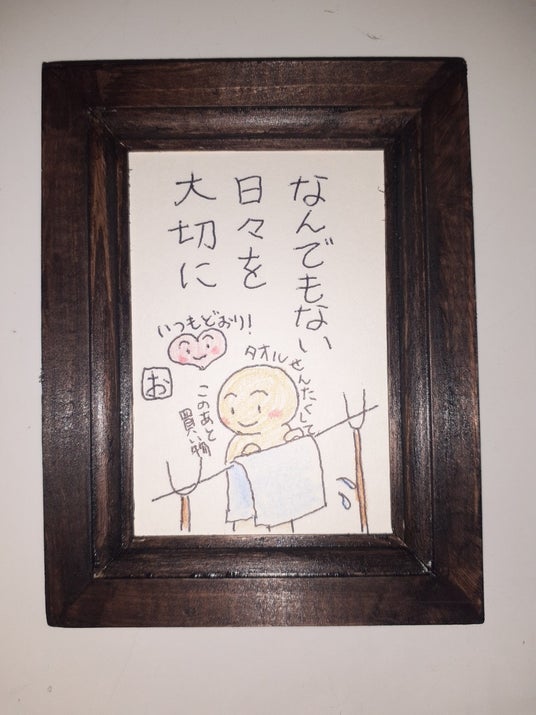 なんでもない
日々を
大切に
いつもどおり!
お
タオルせんたくして
このあと
買い物